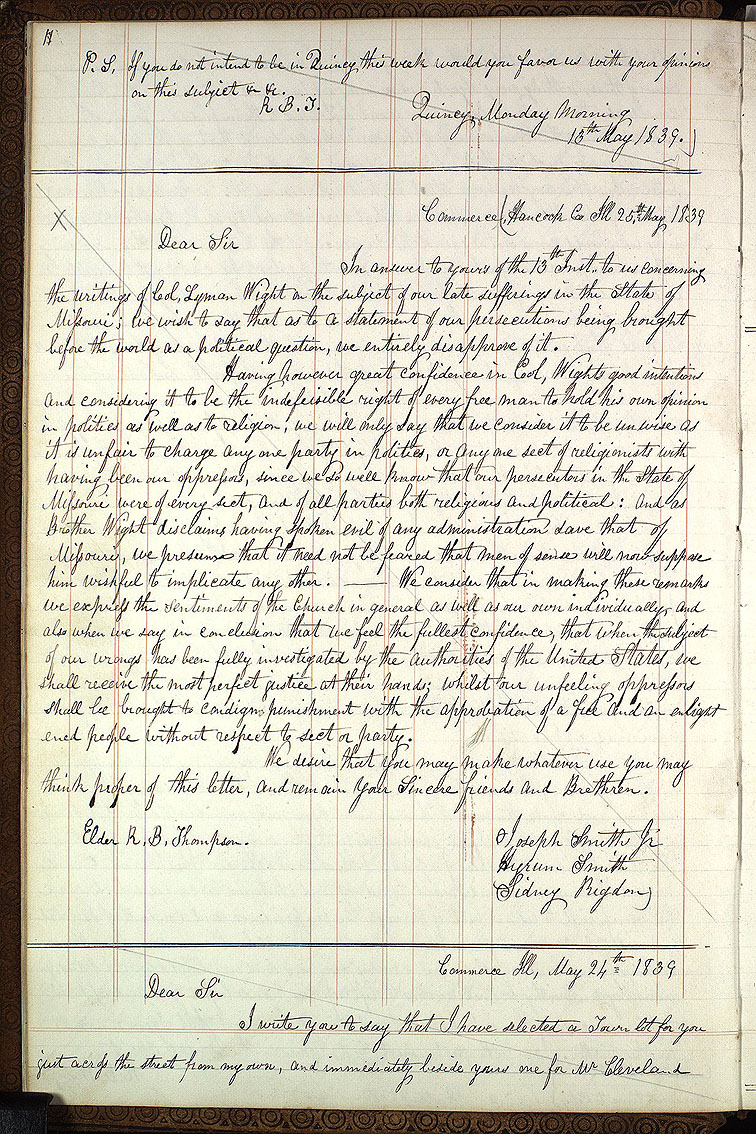 11
P. S. If you do not intend to be in Quincy this week would you favor us with your opinions
on this subject & &c.
R. B. T.
Quincy, Monday Morning
13th May 1839.)
X
Commerce (Hancock Co Ill 25th May, 1839
Dear Sir
In answer to yours of the 13th Inst., to us concerning
the writings of Col, Lyman Wight on the subject of our late sufferings in the State of
Missouri; we wish to say that as to a statement of our persecutions being brought
before the world as a political question, we entirely disapprove of it.
Having however great confidence in Col, Wights good intentions
and considering it to be the indefeisible right of every free man to hold his own opinion
in politics as well as to religion, we will only say that we consider it to be unwise as
it is unfair to charge any one party in politics, or any one sect of religionists with
having been our oppressors, since we so well know that our persecutors in the State of
Missouri were of every sect, and of all parties both religious and political: and as
Brother Wight disclaims having spoken evil of any administration save that of
Missouri, we presume that it need not be feared that men of sense will now suppose
him wishful to implicate any other. — We consider that in making these remarks
we express the sentiments of the Church in general as well as our own individually, and
also when we say in conclusion that we feel the fullest confidence, that when the subject
of our wrongs has been fully investigated by the authorities of the United States, we
shall receive the most perfect justice at their hands; whilst our unfeeling oppressors
shall be brought to condign punishment with the approbation of a free and an enlight
ened people without respect to sect or party.
We desire that you may make whatever use you may
think proper of this letter, and remain your Sincere friends and Brethren.
Elder R. B. Thompson.
Joseph Smith Jr
Hyrum Smith
Sidney Rigdon)
Commerce Ill, May 24th 1839
Dear Sir
I write you to say that I have selected a Town lot for you
just across the street from my own, and immediately beside yours one for Mr Cleveland